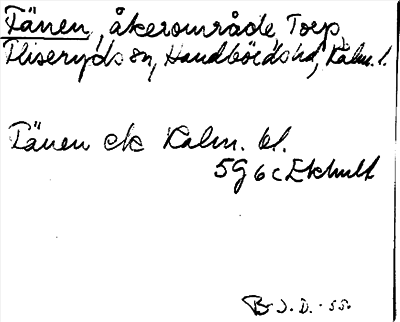 Fänen, åkerområde, Torp,
Fliseryds sn, Handbörds hd, Kalm. l.
Fänen ek Kalm. bl.
5G 6c Ekhult
J. D. - 55.